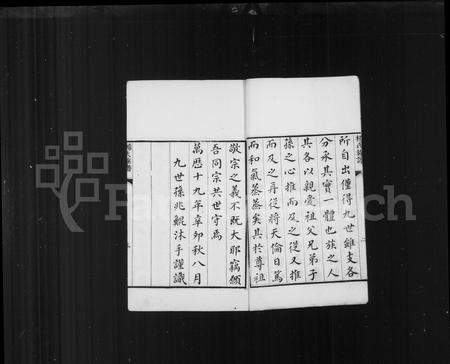 所自出僅得九世雖支各
分承其實一體也族之人
其各以親愛祖父兄弟子
孫之心推而及之從又推
而及之再從將天倫日篤
而和氣蒸蒸矣其於尊祖
敬宗之義不既大耶竊願
吾同宗共世守焉
萬曆十九年辛卯秋八月
九世孫兆鯤沐手謹識